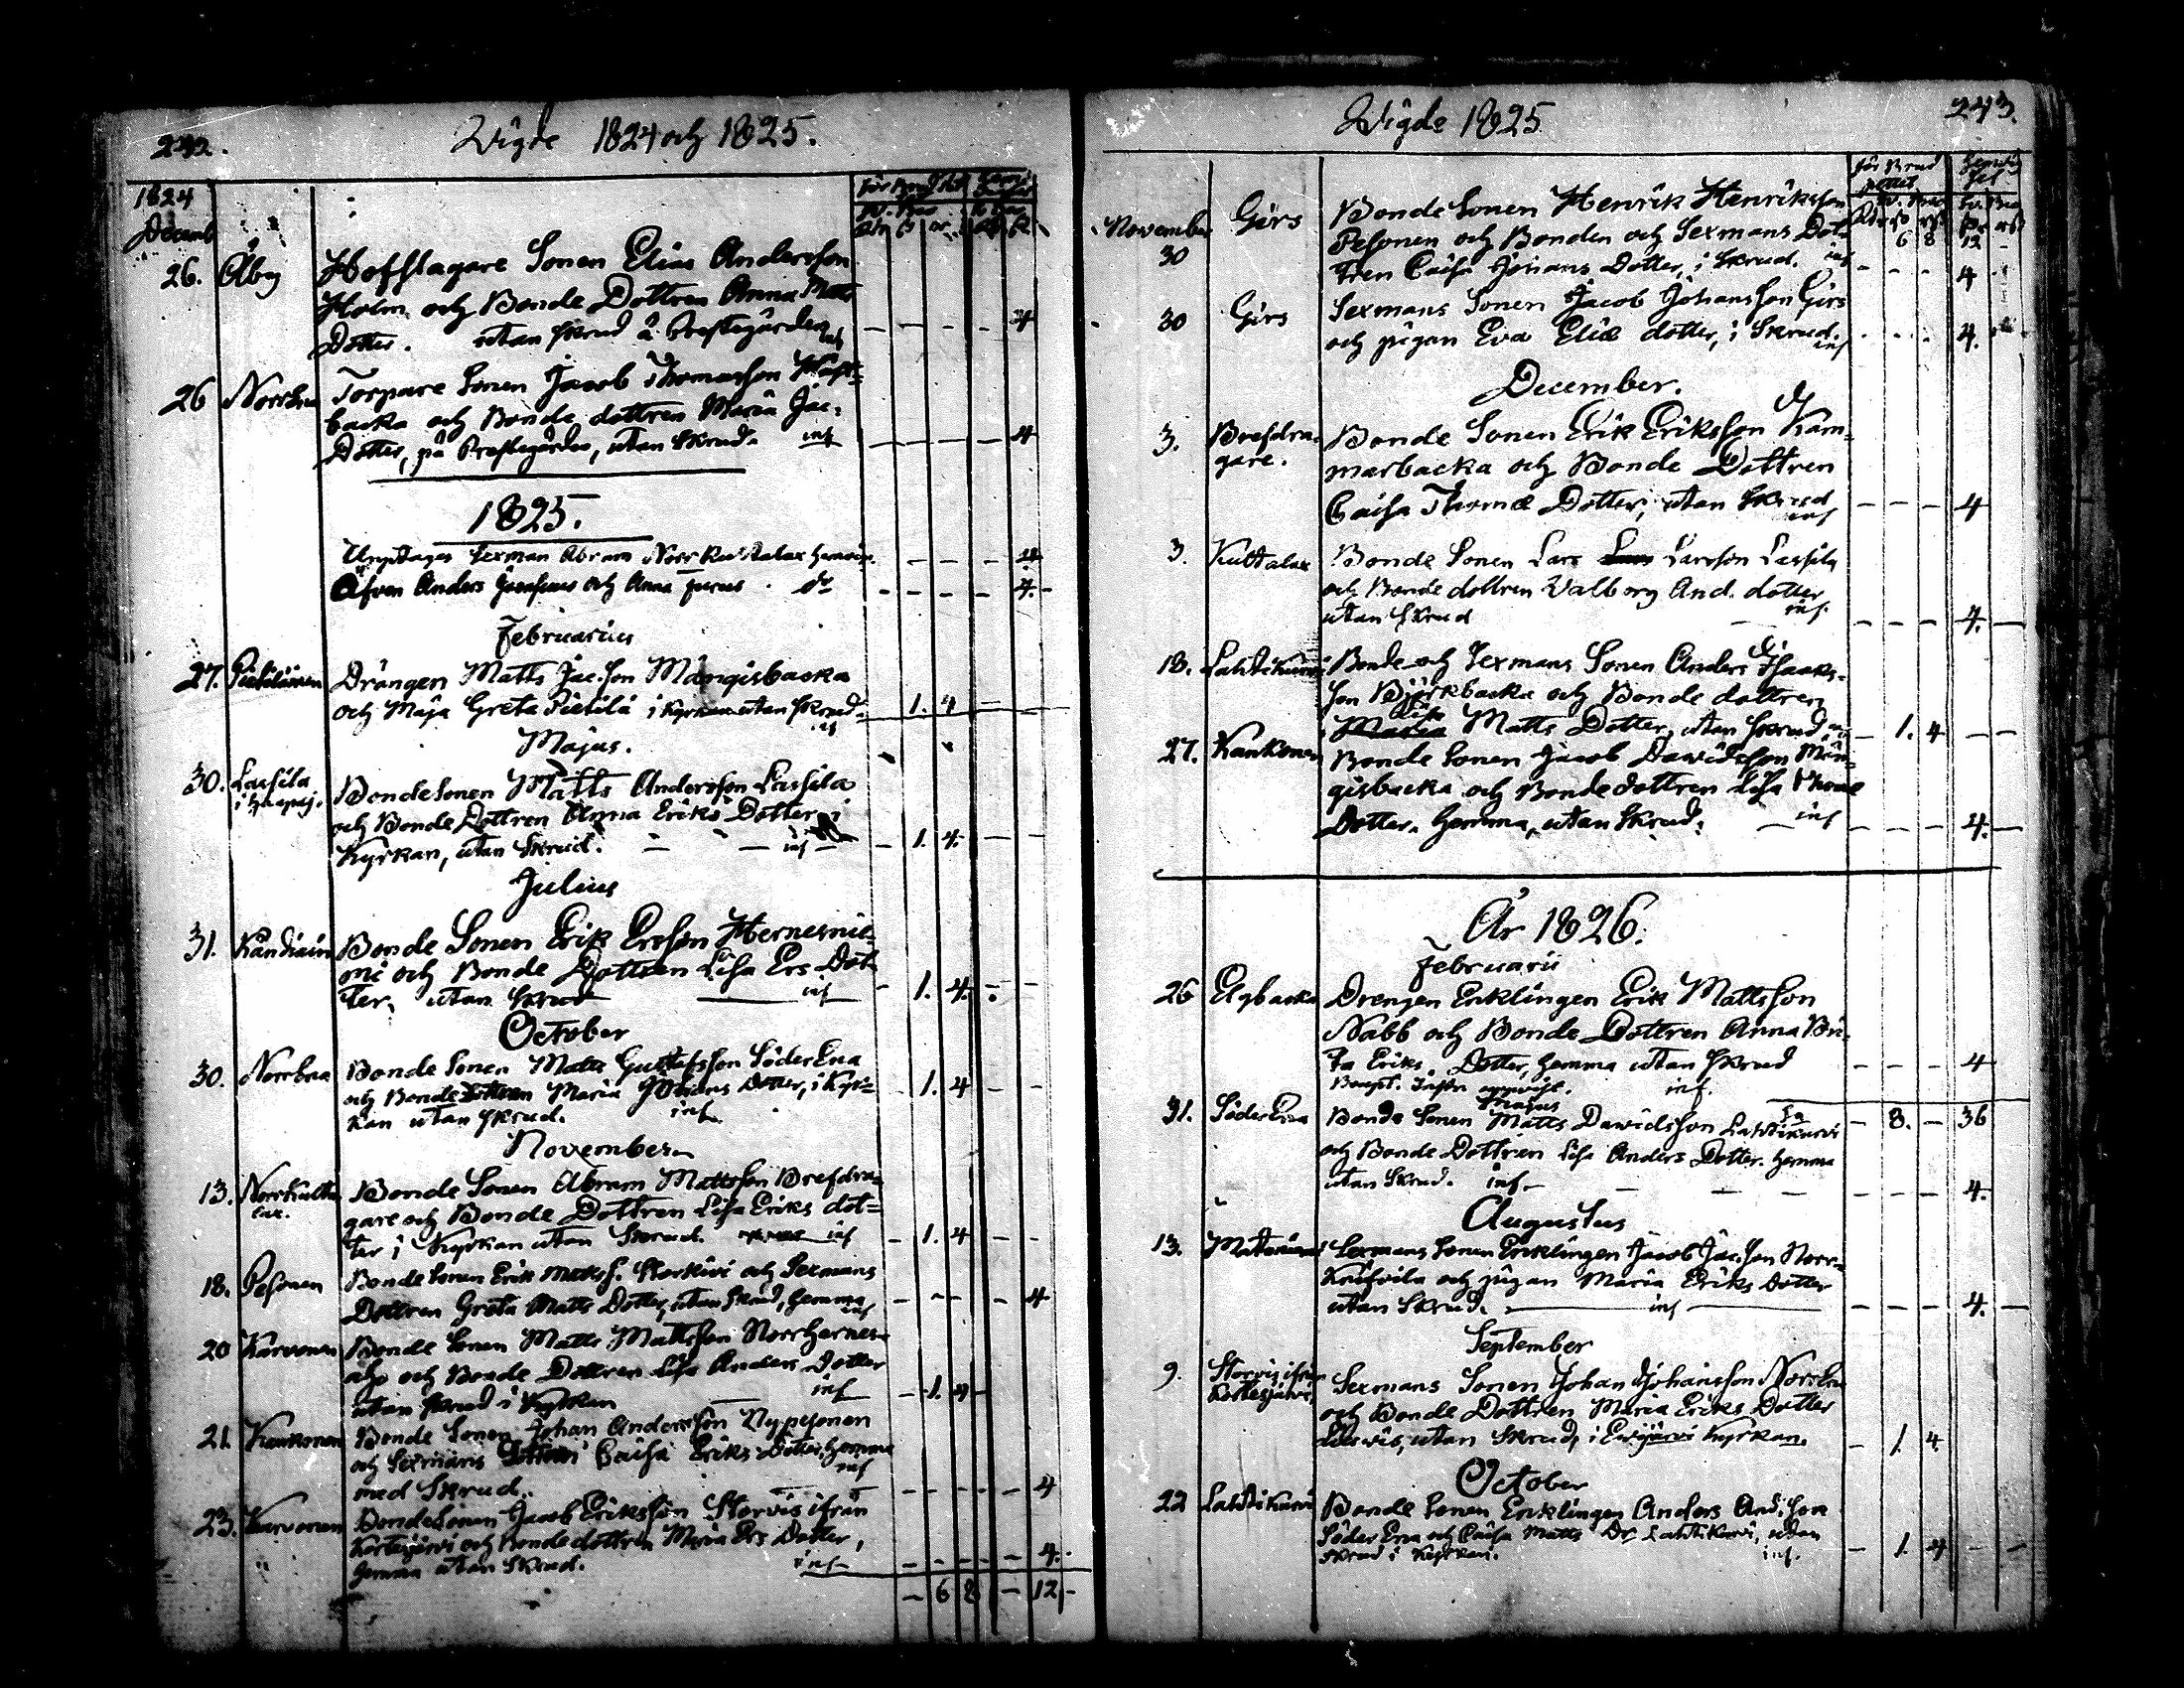 242.
Wigde 1824 och 1825.
1824
Decemb
26. Åby Hofslagare Sonen Elias Andersson
Holm och Bonde Dottren Anna Matts
Dotter. utan skrud å Prestegården inf — — — — 4
26 Norrbna Torpare Sonen Jacob Thomasson
backa och Bonde dottren Maria Jac:
Dotter, på Prestegården, utan Skrud. inf — — — — 4
1825.
Sexman Abram
Äfven Anders och Anna do — — — — 4. —
Februarius
27. Drängen Matts Jac:son Mångisbacka
och Maja Greta Pietilä i Kyrkan utan skrud. inf 1. 4 —
Majus.
30. Lassila
Bonde Sonen Matts Andersson Lassila
och Bonde Dottren Anna Eriks Dotter i
Kyrkan, utan Skrud. — — inf — — 1. 4. — —
Julius
31. Bonde Sonen Erik Ersson Hernesnie-
mi och Bonde Dottren Lisa Ers Dot-
ter, utan Skrud inf — 1. 4. — —
October
30. Norrbna Bonde Sonen Matts Gustafsson SöderEna
och Bonde Dottren Maria Johans Dotter, i Kyr= — 1. 4 — —
kan utan skrud. inf
November
13. Norrkulta
lax.
Bonde Sonen Abram Mattsson Brefdra-
gare och Bonde Dottren Lisa Eriks dot=
ter i Kyrkan utan Skrud. inf — 1. 4 — —
18. Pesonen Bonde Sonen Erik Matss. Storkivi och Sexmans
Dottren Greta Matts Dotter, utan skrud, hemma inf — — — — 4
20 Karvonen Bonde Sonen Matts Mattsson NorrHernes-
aho och Bonde Dottren Lisa Anders Dotter
utan skrud i Kyrkan — inf — 1. 4 —
21. Kankonen Bonde Sonen Johan Andersson Nypesonen
och Sexmans Dottren Caisa Eriks Dotter, hemma
med Skrud. inf — — — — — 4
23. Karvonen Bonde Sonen Jacob Eriksson Storvis ifrån
Kortesjärvi och Bonde dottren Maria Ers Dotter,
hemma utan Skrud. inf — — — — — 4.
— 6 8 — 12 —
Wigde 1825
243.
för Brud
November
30
Girs
Bonde Sonen Henrik Henriksson
Pesonen och Bonden och Sexmans Dot-
tren Caisa Johans Dotter, i Skrud. inf — — — 4
6 8 12 —
30 Girs Sexmans Sonen Jacob Johansson Girs
och pigan Eva Eliæ dotter, i Skrud. inf 4.
December.
3. Brefdra-
gare.
Bonde Sonen Erik Eriksson Kam-
marbacka och Bonde Dottren
Caisa Thomæ Dotter, utan Skrud inf — — — 4
3. Kultalax Bonde Sonen Lars Larsson Lassila
och Bonde dottren Valborg And. dotter
utan skrud — inf. — — — 4. —
18. Lahtikurvi Bonde och Sexmans Sonen Anders Isaaks-
son Björkbacka och Bonde dottren
Lisa
Maria Matts Dotter, utan skrud, — 1. 4 — —
27. Kankonen Bonde Sonen Jacob Dawidsson Mån-
gisbacka och Bonde dottren Lisa Thomæ
Dotter. Hemma, utan Skrud. — inf — — — 4. —
År 1826.
Februarii
26 Elgbacka Drengen Enklingen Erik Mattsson
Nabb och Bonde Dottren Anna Bri-
ta Eriks. Dotter, hemma utan skrud — — — 4
inf.
Majus
31. SöderEna Bonde Sonen Matts Dawidsson Lahtikurvi — 8. — 36
och Bonde Dottren Lisa Anders Dotter. hemma
utan Skrud. inf. — — — — — — 4.
Augustus
13. Sexmans Sonen Enklingen Jacob Jac:son Norr-
Knifvila och pigan Maria Eriks Dotter
utan Skrud. — inf — — — — 4. —
September
9. Storvis ifrån
Kortesjärvi,
Sexmans Sonen Johan Johansson NorrEna
och Bonde Dottren Maria Eriks Dotter
utan Skrud, i Evijärvi Kyrkan. — 1. 4.
October
22 Lahtikurvi Bonde Sonen Enklingen Anders And:son
Söder Ena och Caisa Matts Dr Lahtikurvi, utan
skrud i Kyrkan. inf. — 1. 4 — —